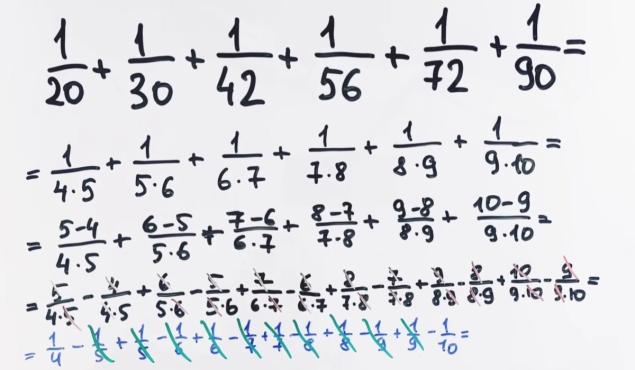 1/20 + 1/30 + 1/42 + 1/56 + 1/72 + 1/90 =
= 1/4·5 + 1/5·6 + 1/6·7 + 1/7·8 + 1/8·9 + 1/9·10 =
= 5-4/4·5 + 6-5/5·6 + 7-6/6·7 + 8-7/7·8 + 9-8/8·9 + 10-9/9·10 =
= 5/4·5 - 4/4·5 + 6/5·6 - 5/5·6 + 7/6·7 - 6/6·7 + 8/7·8 - 7/7·8 + 9/8·9 - 8/8·9 + 10/9·10 - 9/9·10 =
= 1/4 - 1/5 + 1/5 - 1/6 + 1/6 - 1/7 + 1/7 - 1/8 + 1/8 - 1/9 + 1/9 - 1/10 =